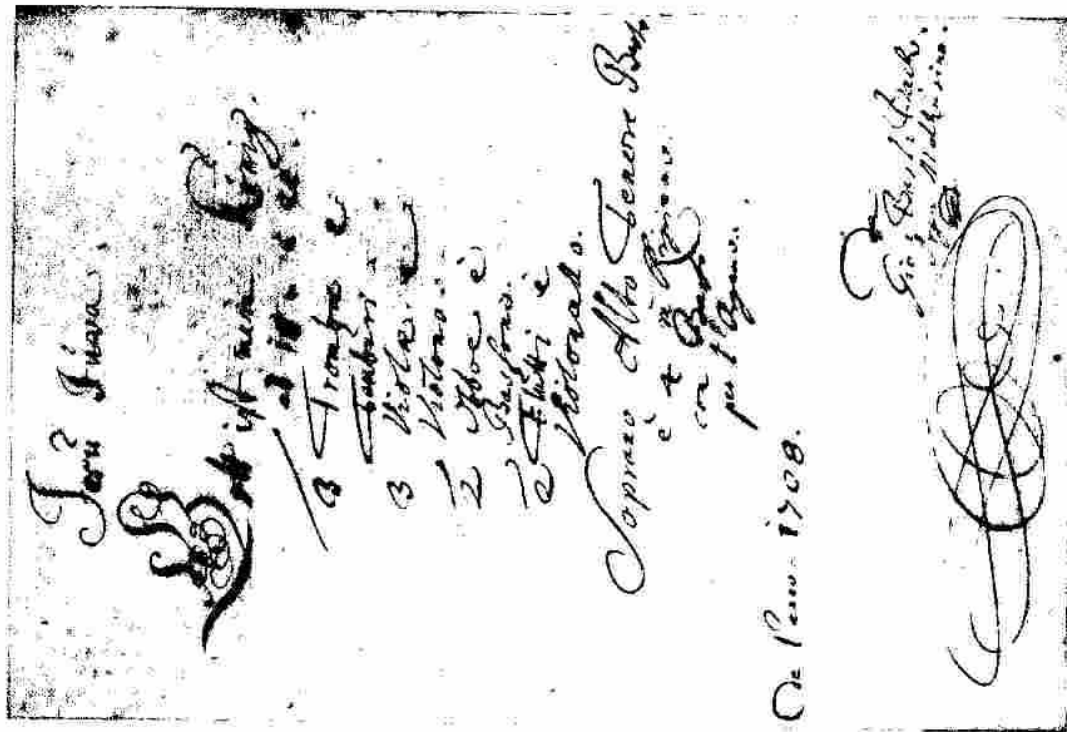 Jesu Juva
Gott ist mein König.
ab 18
3 Trombe è
Tamburi
3 Violi è
Violono
2 Oboe è
Bassono.
2 Flutti è
Violoncello.
Soprano Alto Tenore Basso
è 4 Ripieno.
con Basso
per l'Organo.
De l'anno 1708.
Gio: Bast: Bach.
Molhusino.